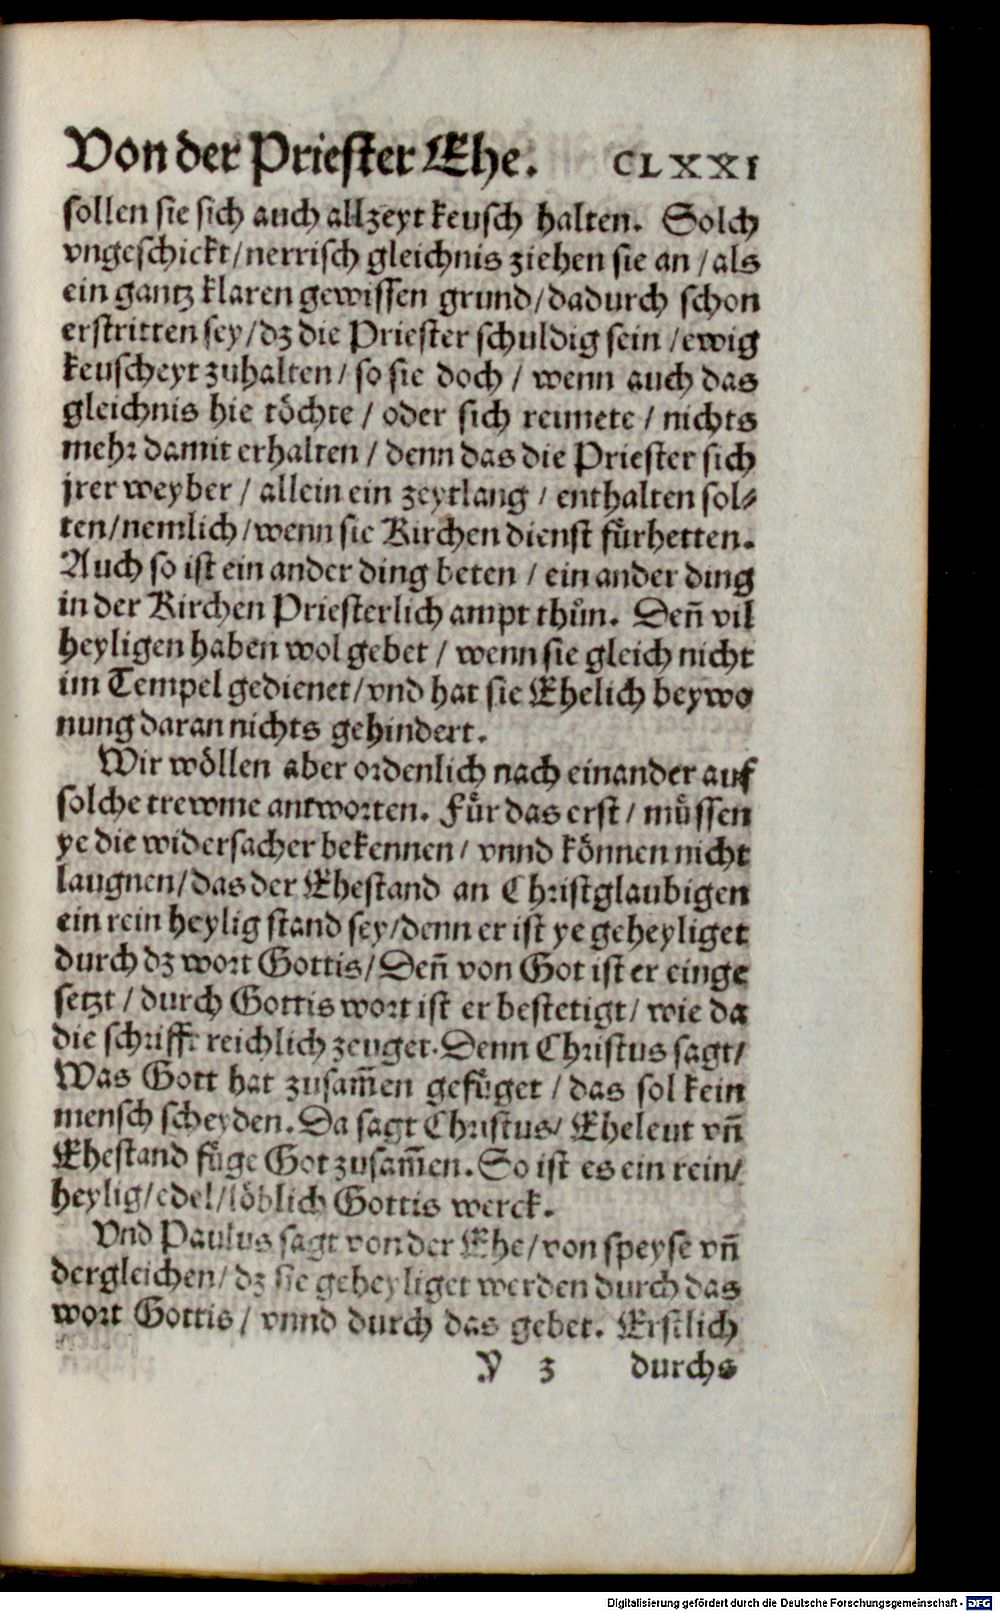 Von der Priester Ehe. CLXXI
sollen sie sich auch allzeyt keusch halten. Solch
vngeschickt/nerrisch gleichnis ziehen sie an/als
ein gantz klaren gewissen grund/dadurch schon
erstritten sey/dz die Priester schuldig sein/ewig
keuscheyt zuhalten/ so sie doch/ wenn auch das
gleichnis hie töchte/ oder sich reimete/ nichts
mehr damit erhalten/ denn das die Priester sich
jrer weyber/ allein ein zeytlang/ enthalten sol⸗
ten/nemlich/wenn sie Kirchen dienst fürhetten.
Auch so ist ein ander ding beten/ ein ander ding
in der Kirchen Priesterlich ampt thůn. Deñ vil
heyligen haben wol gebet/ wenn sie gleich nicht
im Tempel gedienet/vnd hat sie Ehelich beywo
nung daran nichts gehindert.
Wir wöllen aber ordenlich nach einander auf
solche trewme antworten. Für das erst/ müssen
ye die widersacher bekennen/ vnnd können nicht
laugnen/das der Ehestand an Christglaubigen
ein rein heylig stand sey/denn er ist ye geheyliget
durch dz wort Gottis/Deñ von Got ist er einge
setzt/durch Gottis wort ist er bestetigt/ wie da
die schrifft reichlich zeuget. Denn Christus sagt/
Was Gott hat zusam̃en gefüget/das sol kein
mensch scheyden. Da sagt Christus/ Eheleut vñ
Ehestand füge Got zusam̃en. So ist es ein rein/
heylig/edel/löblich Gottis werck.
Vnd Paulus sagt von der Ehe/von speyse vñ
dergleichen/dz sie geheyliget werden durch das
wort Gottis/ vnnd durch das gebet. Erstlich
Y 3 durchs
Digitalisierung gefördert durch die Deutsche Forschungsgemeinschaft - DFG